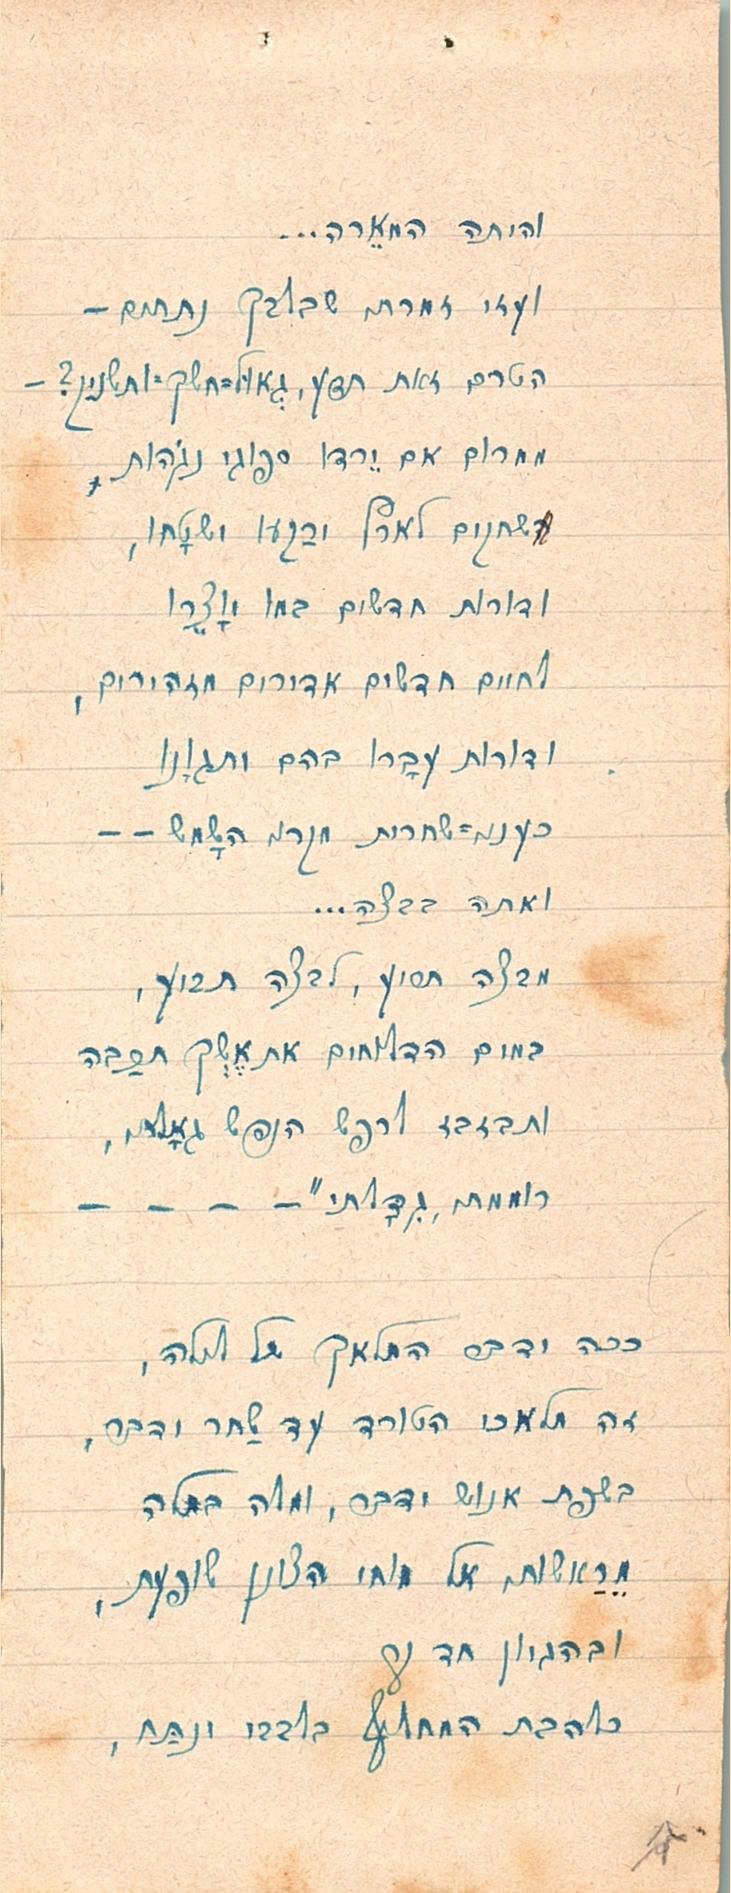 והיתה המאֵרה...
ועזי זמרת שבלבך נחתם –
הטרם זאת תדע, גְאוּל=חשק=ותשניק? –
ממרום אם יֵרדו ספוגי נגֹהות
השחקים לארץ ורַקעו ושטָחו,
ודורות חדשים במו יוָצֵרָו
לחיים חדשים אדירים מזהירים,
ודורות עבָרו בהם ותגוָנו
כענת=שחרית מקרת השָמש – –
ואתה בבצה...
מבצה תסוע, לבצה תבוע,
במים הדלוחים את אֶשְך תכַבה
ותבזבז לרפש הנפש
רוממת, גִדָלתי" – – – –
ככה ידבר המלאך של לילה,
זה מלאכי הטורד עד שַחר ידבר,
בשפת אנוש ידבר, ומלה במלה
מֵרַאשותי אל מוחי הצונן שופעת,
ובהגיון חד נוקב
כלהבת המחליף בלבבי ונִתַּח,